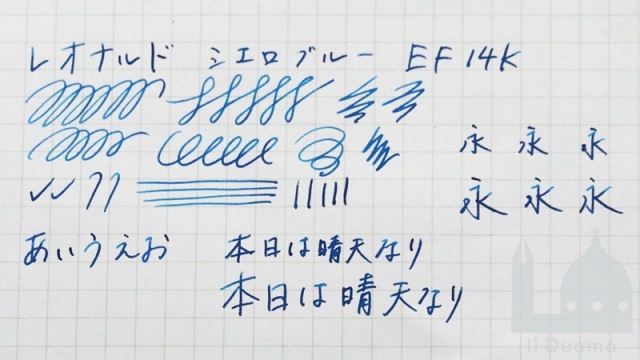 レオナルド シエロブルー EF 14K
永 永 永
永 永 永
あいうえお 本日は晴天なり
本日は晴天なり
Il Duomo